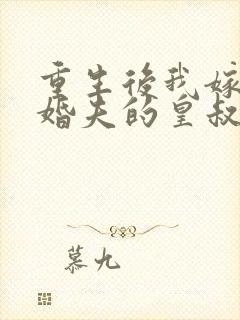 重生後我嫁
婚夫的皇叔
慕九